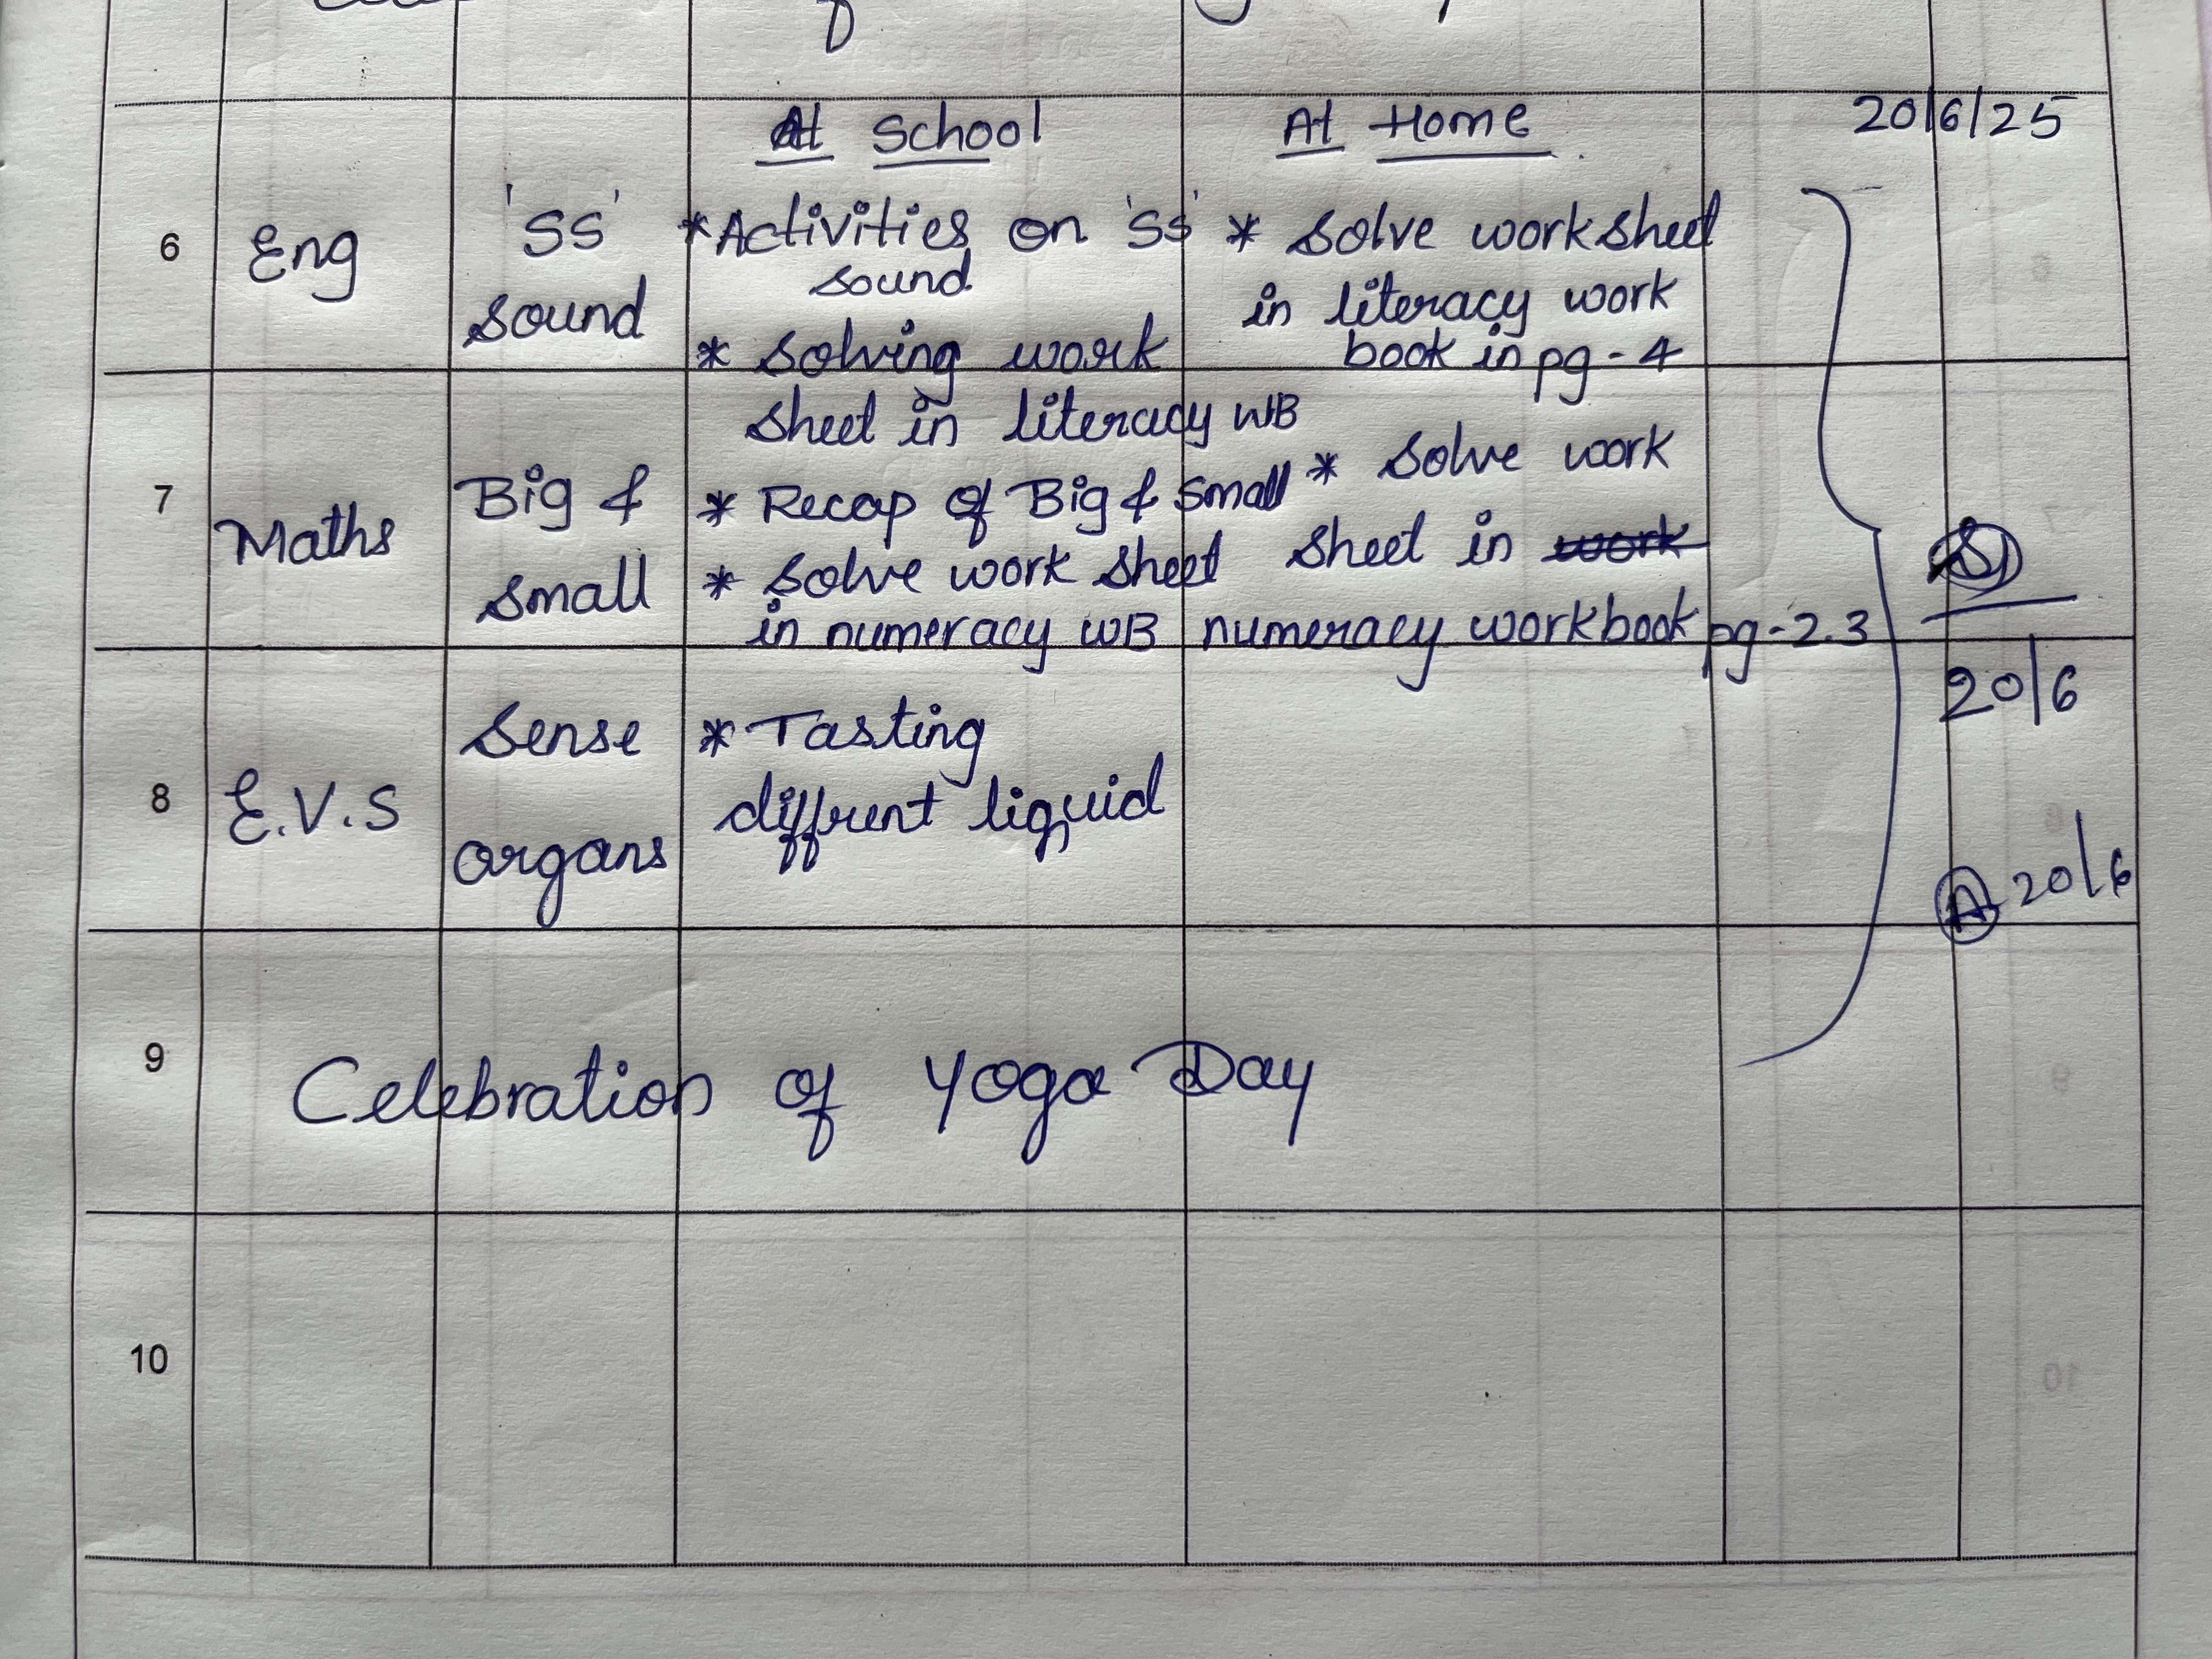 At School At Home 20/6/25
6 Eng 'SS' sound
*Activities on 'SS' sound
* Solving work sheet in literacy WB
* Solve worksheet
in literacy work
book in pg - 4
7 Maths Big & small
* Recap of Big & Small
* Solve work sheet
in numeracy WB
* Solve work
sheet in work
numeracy workbook pg-2.3
20/6
8 E.V.S Sense organs
* Tasting
diffrent liquid
20/6
9 Celebration of Yoga Day
10